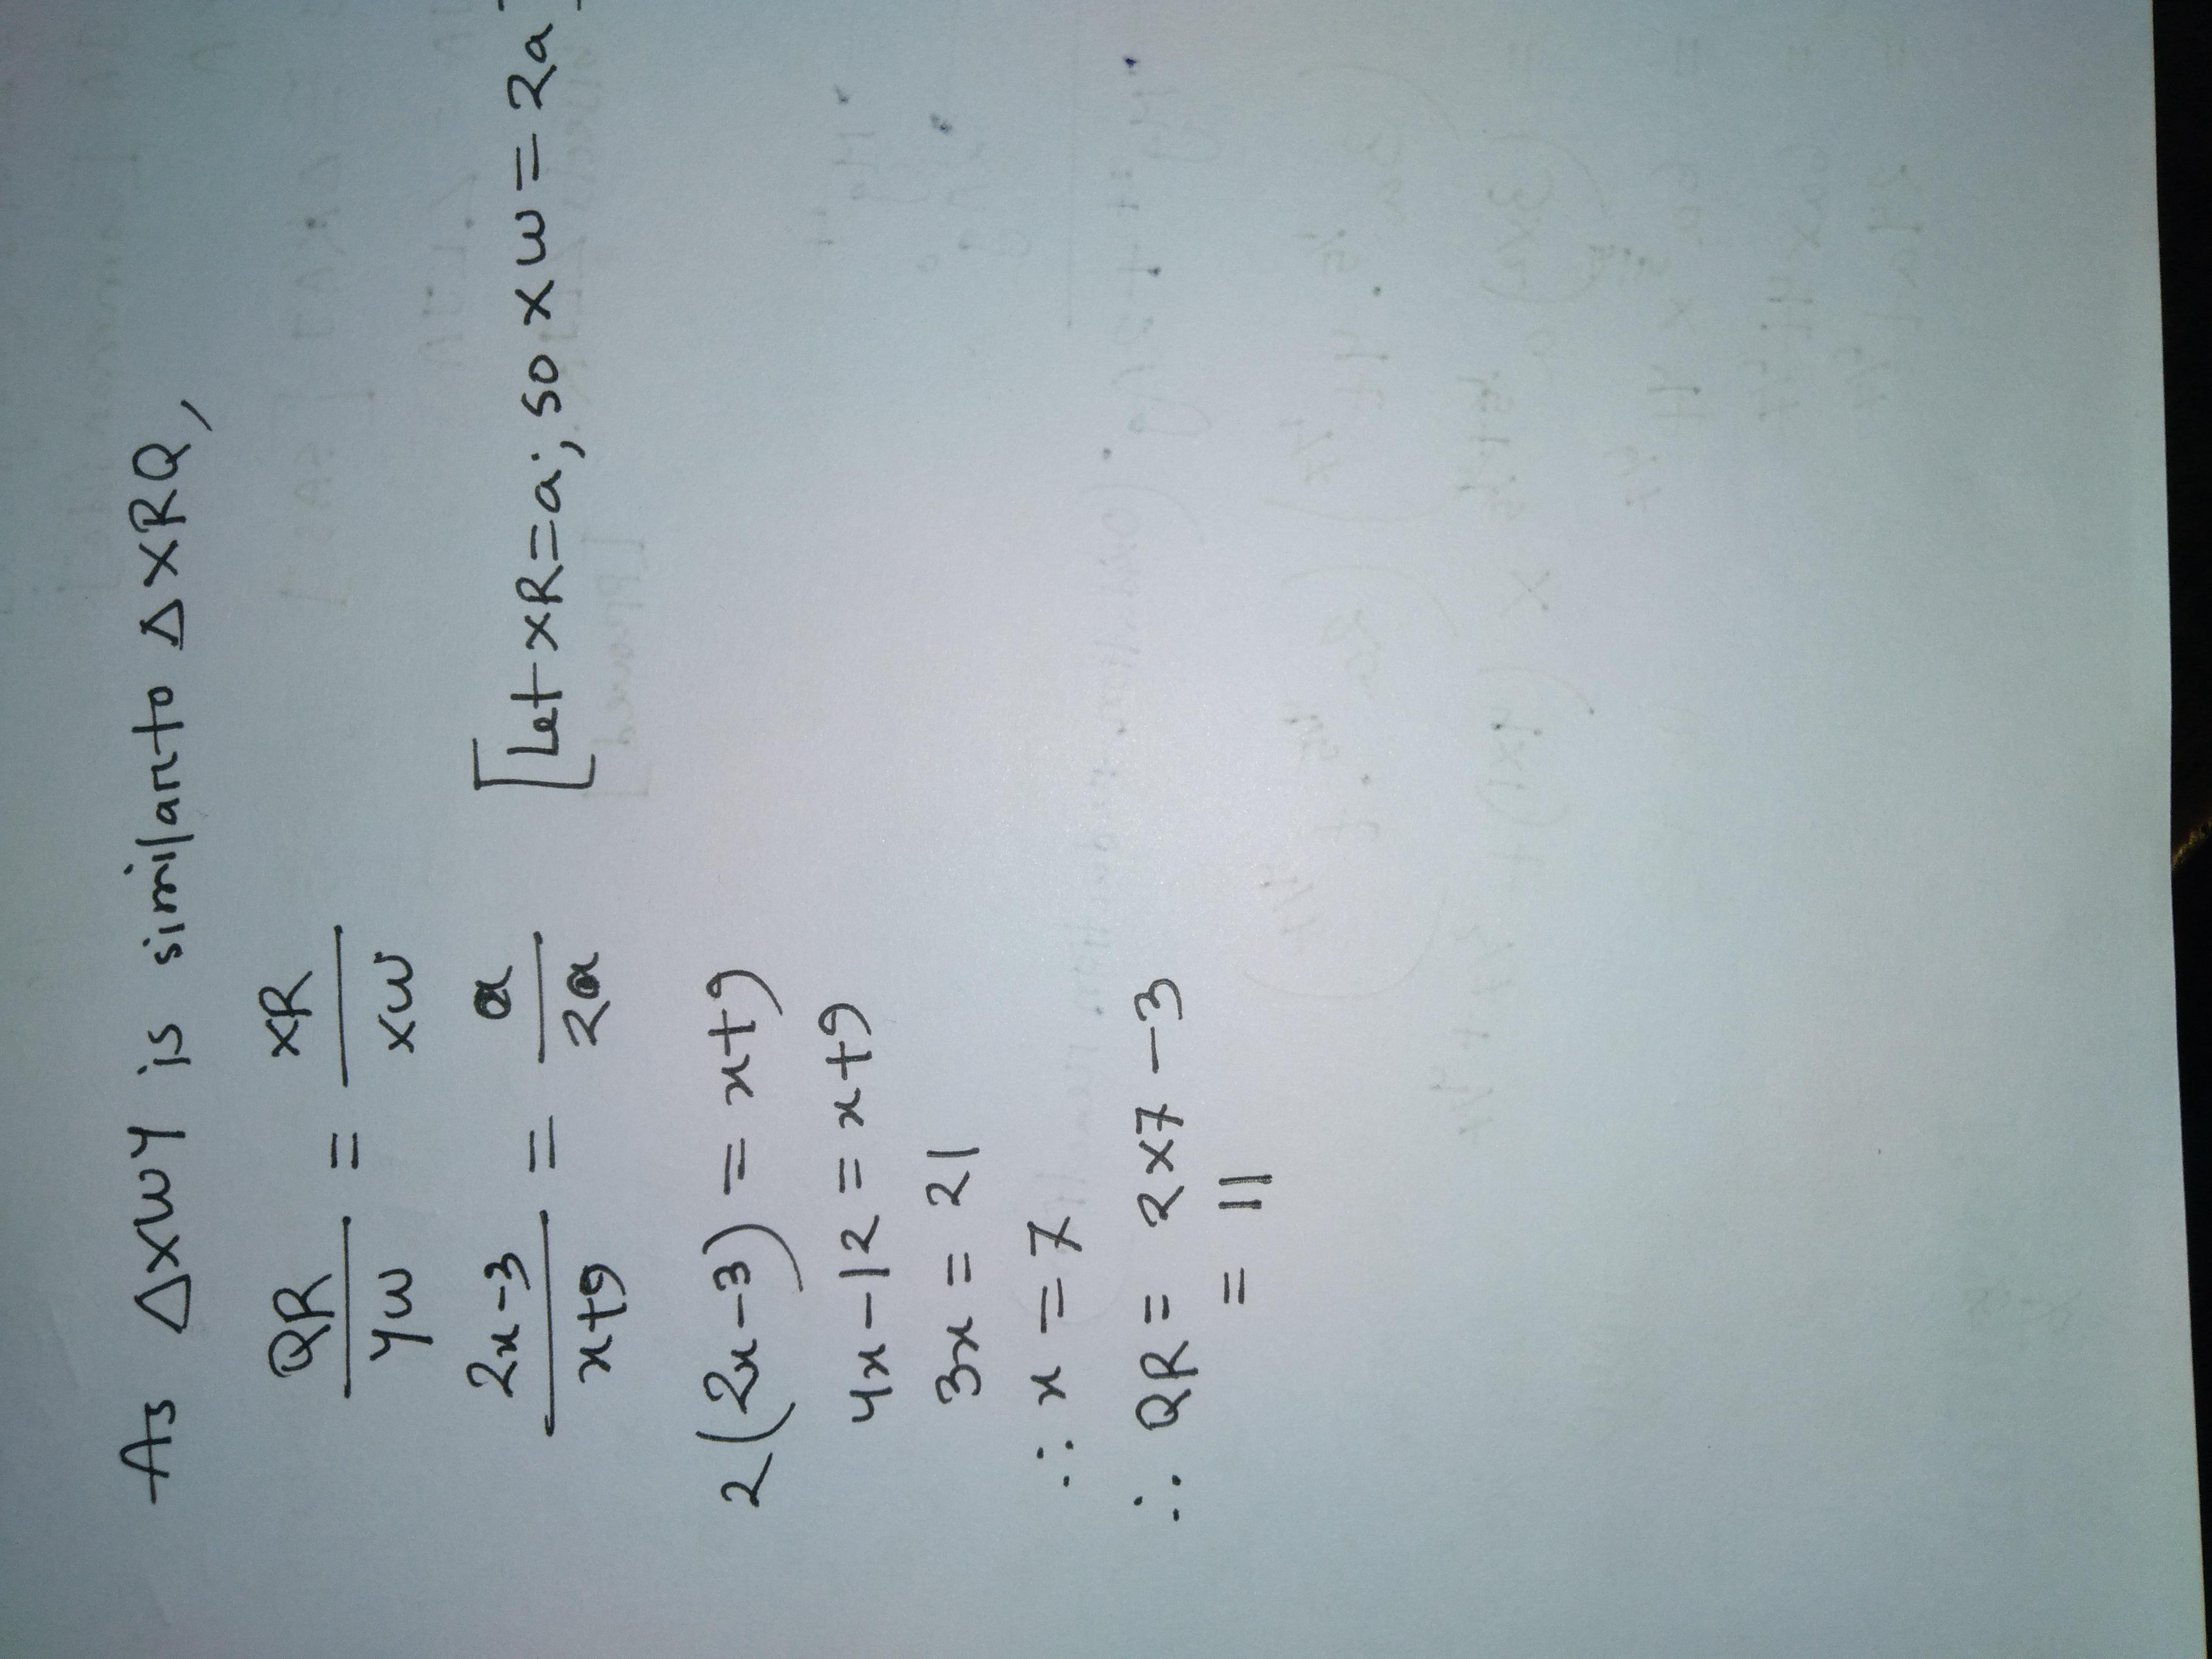 As ΔXWY is similar to ΔXRQ,
QR/YW = XR/XW
2x-3/x+9 = a/2a [Let XR=a; so XW=2a]
2(2x-3) = x+9
4x-12 = x+9
3x = 21
∴ x = 7
∴ QR = 2x7-3
= 11